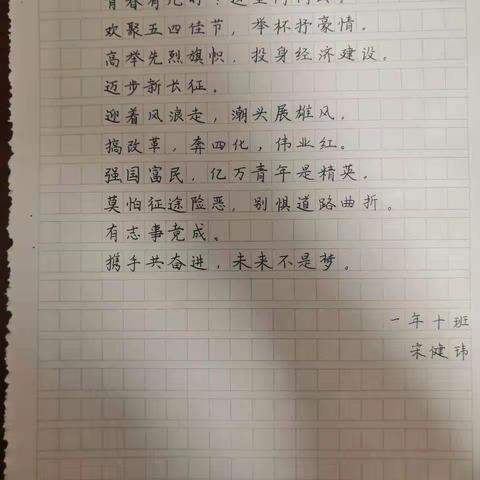 欢聚五四佳节，举杯抒豪情。
高举先烈旗帜，投身经济建设。
迈步新长征。
迎着风浪走，潮头展雄风，
搞改革，奔四化，伟业红。
强国富民，亿万青年是精英，
莫怕征途险恶，别惧道路曲折。
有志事竟成。
携手共奋进，未来不是梦。
一年十班
宋健玮